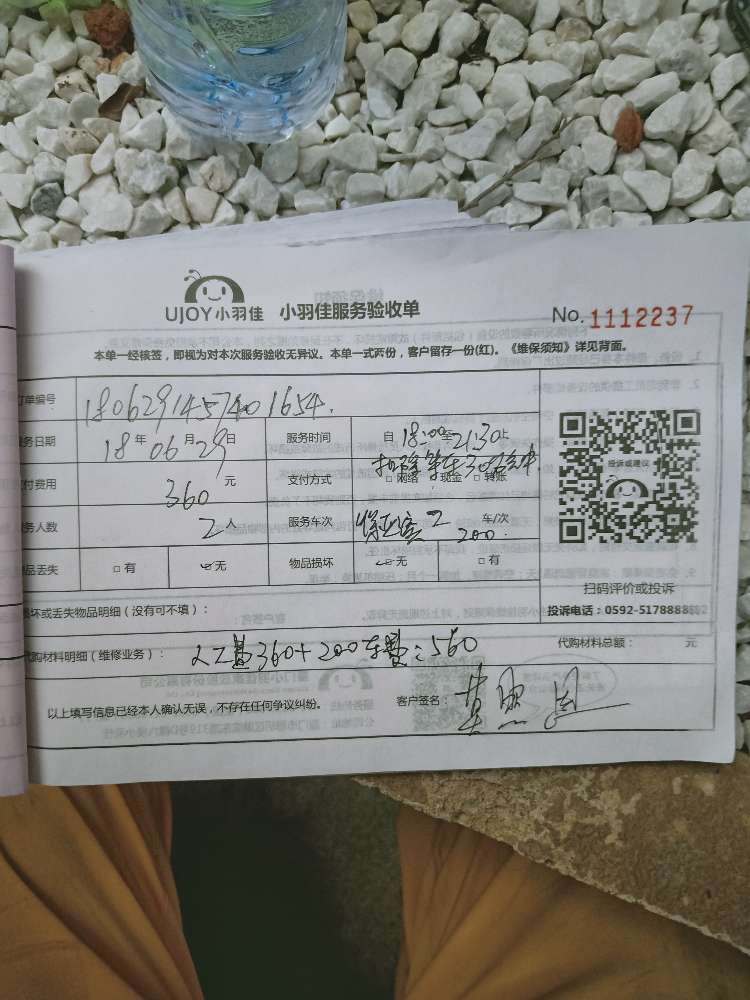 UJOY小羽佳 小羽佳服务验收单 No.1112237
本单一经核签，即视为对本次服务验收无异议。本单一式两份，客户留存一份(红)。《维保须知》详见背面。
订单编号 180629145740 1654
服务日期 18年06月29日 服务时间 自18:00至21:30
扣除等车30分钟.
付费用 360元 支付方式 □网络 □现金 □转账
务人数 2人 服务车次 2 车/次
200
品丢失 □有 无 物品损坏 无 □有
投诉或建议
扫码评价或投诉
投诉电话：0592-5178888
损坏或丢失物品明细（没有可不填）：
代购材料明细（维修业务）： 人工费360+200车费=560 代购材料总额： 元
以上填写信息已经本人确认无误，不存在任何争议纠纷。 客户签名：